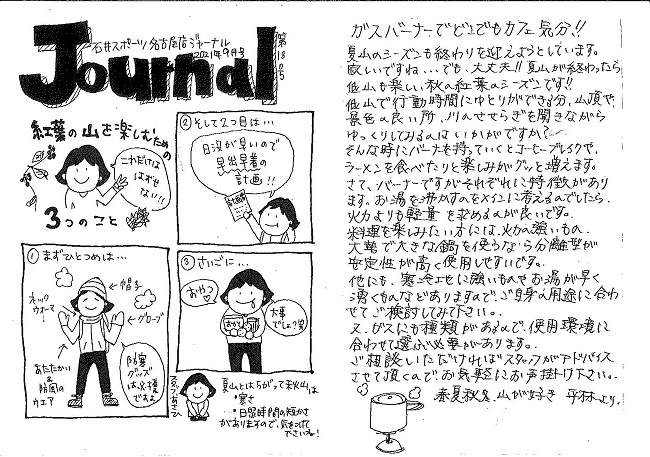 石井スポーツ名古屋店ジャーナル
2021年9月号
第180号
Journal
紅葉の山を楽しむための
これだけは
はずせ
ない!!
3つのこと
① まずひとつめは…
帽子
ネック
ウォーマー
グローブ
あたたかい
&
防風の
ウエア
防寒
グッズ
は必携
ですよ
② そして2つ目は…
日没が早いので
早出早着の
計画!!
計画書
③ さいごに…
おやつ
大事
でしょ?笑
おかし
夏山とはちがって秋山は
・寒さ
・日照時間の短かさ
がありますので、気をつけて
下さいね!
ガスバーナーでどこでもカフェ気分!!
夏山のシーズンも終わりを迎えようとしています。
寂しいですね…でも、大丈夫!!夏山が終わったら
低山も楽しい秋の紅葉のシーズンです!!
低山で行動時間にゆとりができる分、山頂や
景色の良い所、川のせせらぎを聞きながら
ゆっくりしてみるのはいかがですか?
そんな時にバーナーを持っていくとコーヒーブレイクや、
ラーメンを食べたりと楽しみがグッと増えます。
さて、バーナーですがそれぞれに特徴があり
ます。お湯を沸かすのをメインに考えるのでしたら、
火力よりも軽量を求めるのが良いです。
料理を楽しみたい方には、火力の強いもの、
大勢で大きな鍋を使うなら分離型が
安定性が高く使用しやすいです。
他にも、寒冷地に強いものやお湯が早く
湧くものなどありますので、ご自身の用途に合わ
せてご検討してみて下さい。
又、ガスにも種類があるので、使用環境に
合わせて選ぶ必要があります。
ご相談いただければスタッフがアドバイス
させて頂くので、お気軽にお声掛け下さい。
春夏秋冬、山が好き 平林より。